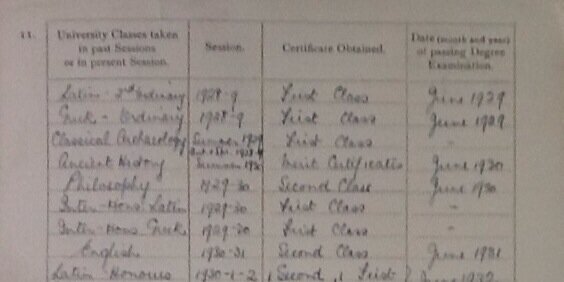 11. University Classes taken in past Sessions or in present Session. Session. Certificate Obtained. Date (month and year) of passing Degree Examination.
Latin - 2nd Ordinary 1928-9 First Class June 1929
Greek - Ordinary 1928-9 First Class June 1929
Classical Archaeology Summer 1929 First Class "
Ancient History Summer 1930 Merit Certificate June 1930
Philosophy 1929-30 Second Class June 1930
Inter-Hons. Latin 1929-30 First Class "
Inter-Hons. Greek 1929-30 First Class "
English 1930-31 Second Class June 1931
Latin Honours 1930-1-2 Second, First June 1932